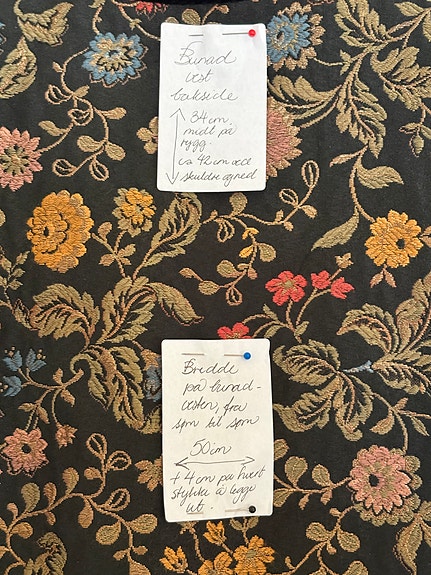 Bunad
vest
bakside
34 cm.
midt på
rygg.
ca 42 cm
skuldre og ned
Bredde
på bunad-
vesten, fra
søm til søm
50 cm
+ 4 cm på hvert
stykke å legge
ut.